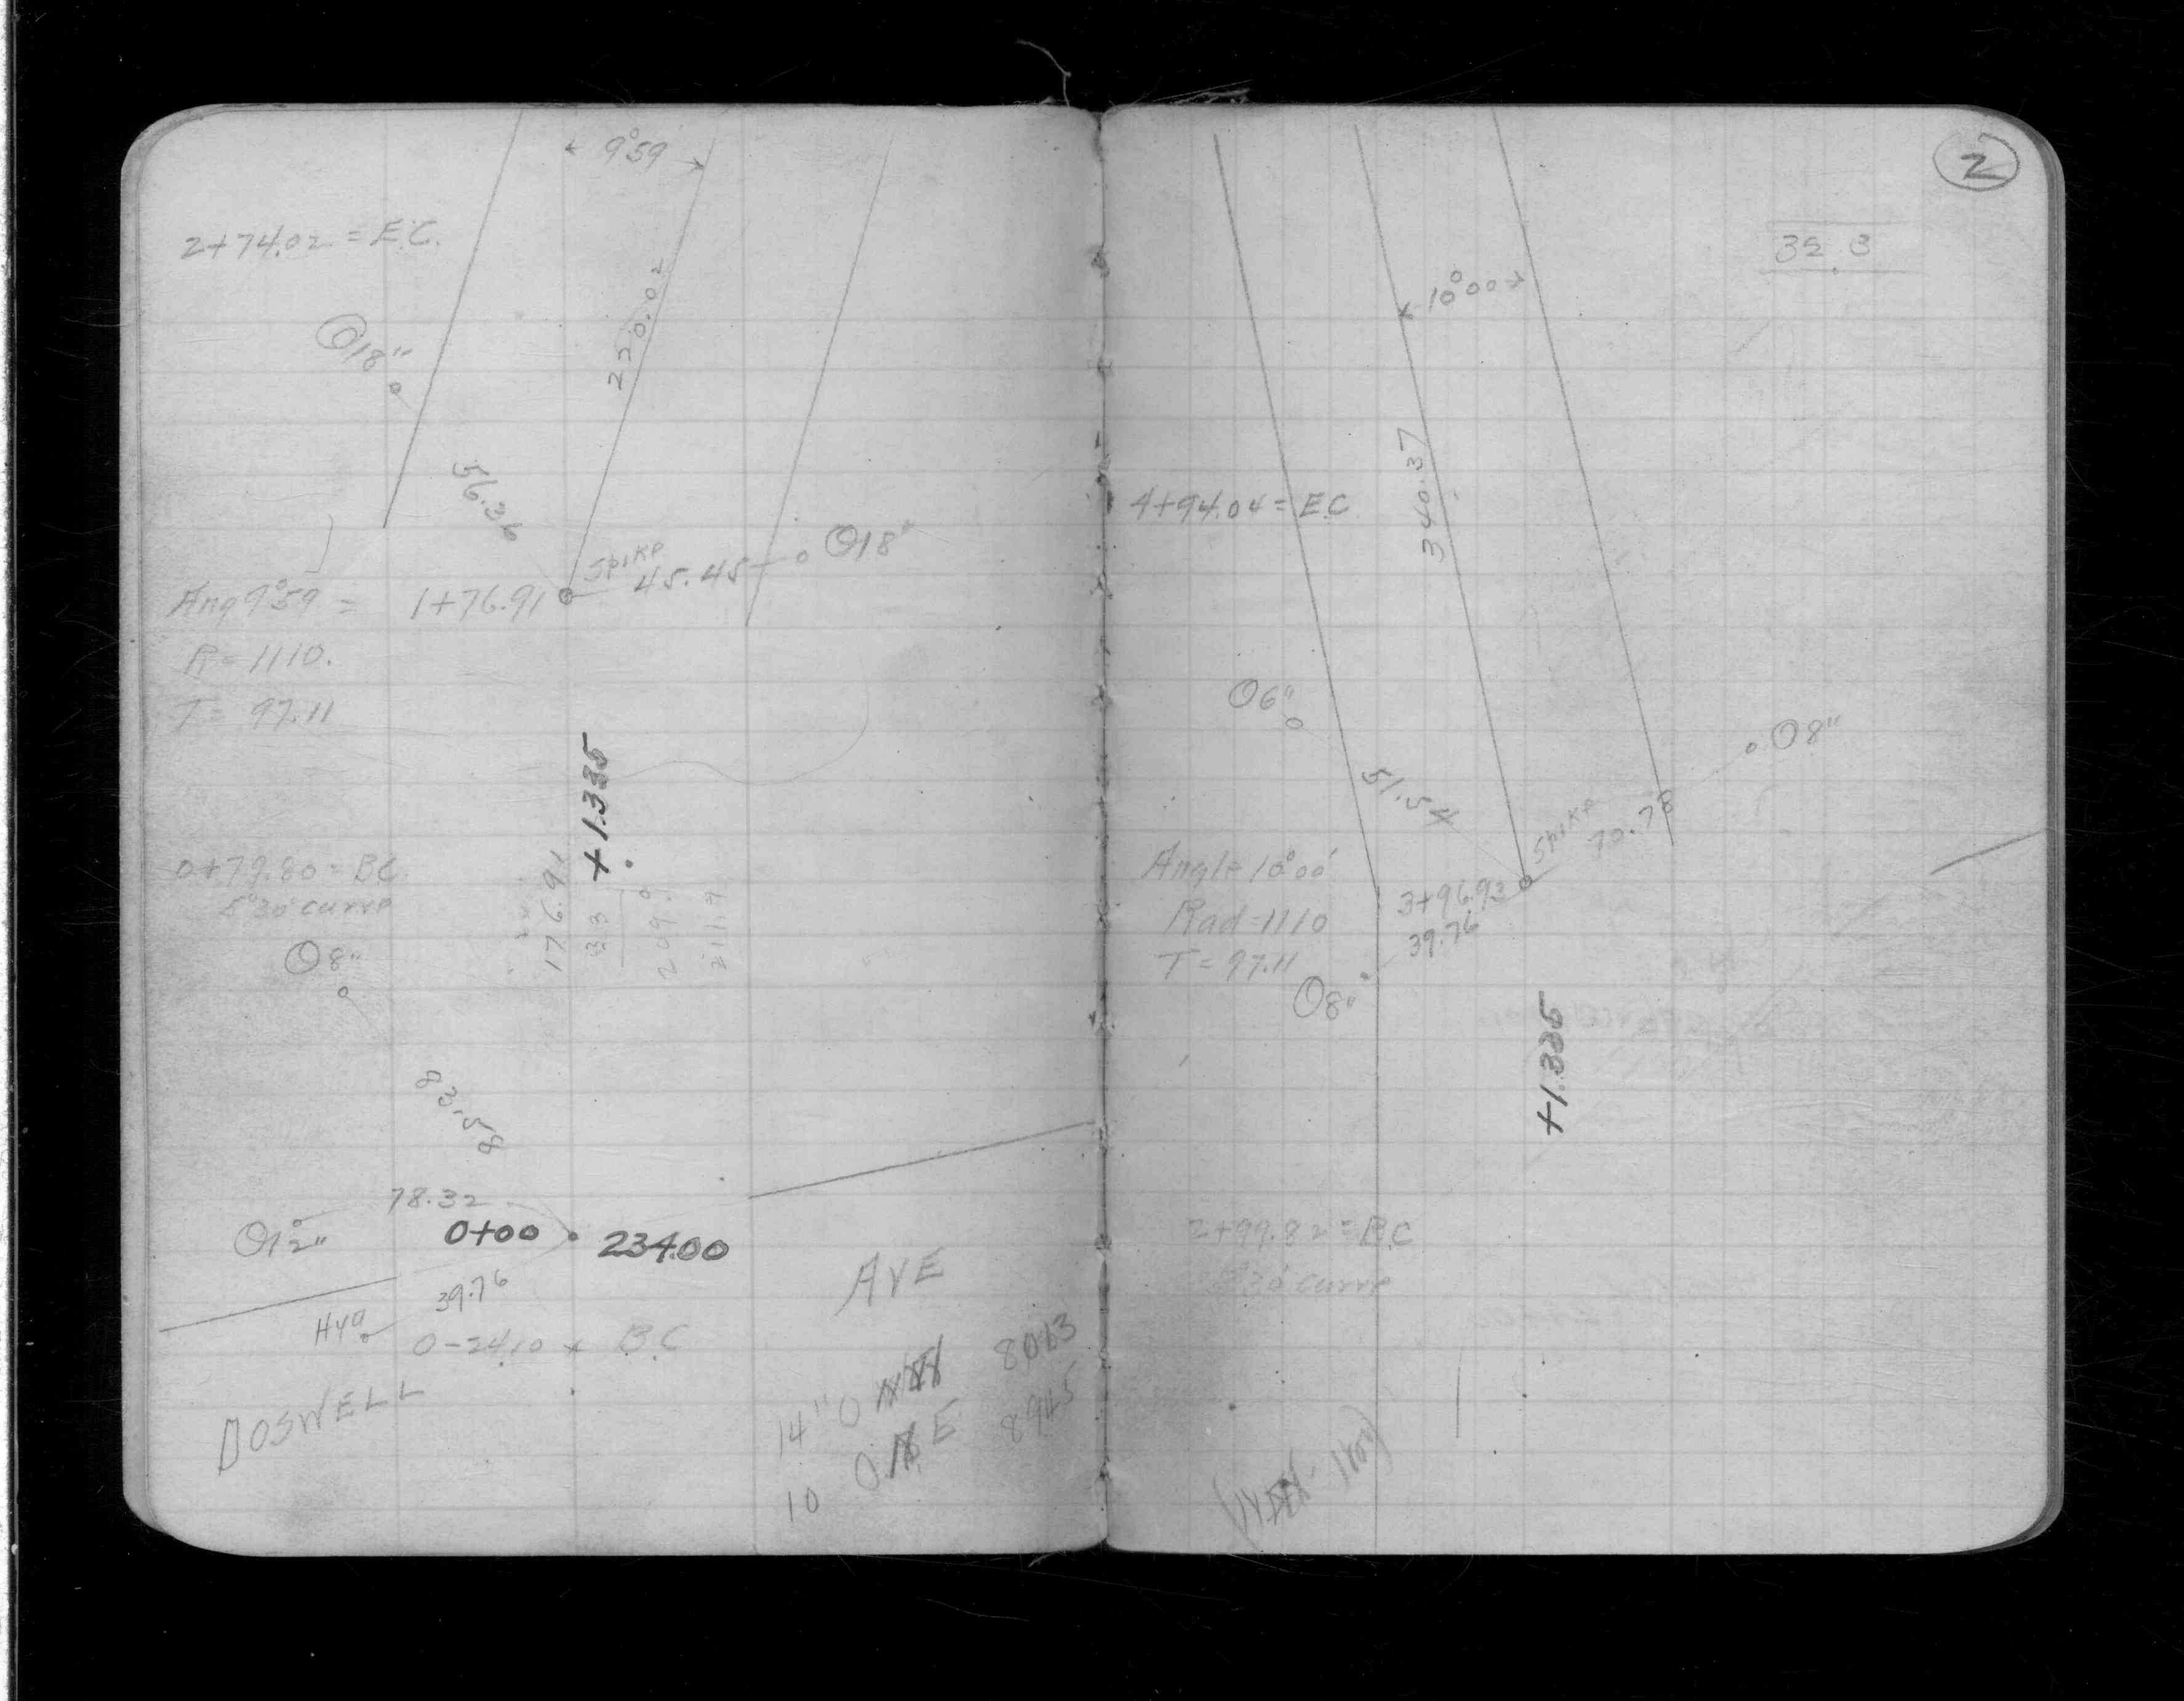 9°59
2+74.02 = E.C.
220.02
O18"
56.36
Spike
45.45
O18"
Ang 9°59 = 1+76.91
R = 1110.
T = 97.11
+1.335
0+79.80 = BC.
5°30' curve
176.91
33
209.9
211.9
O8"
83.58
78.32
O12"
0+00
234.00
39.76
HYD
0-24.10 x B.C
AVE
DOSWELL
14" O
8063
10 O E
8945
2
32.3
10°00
340.37
4+94.04 = E.C
O6"
O8"
51.54
Spike
70.78
Angle 10°00'
3+96.93
Rad = 1110
39.76
T = 97.11
O8"
+1.335
2+99.82 = B.C
5°30' curve